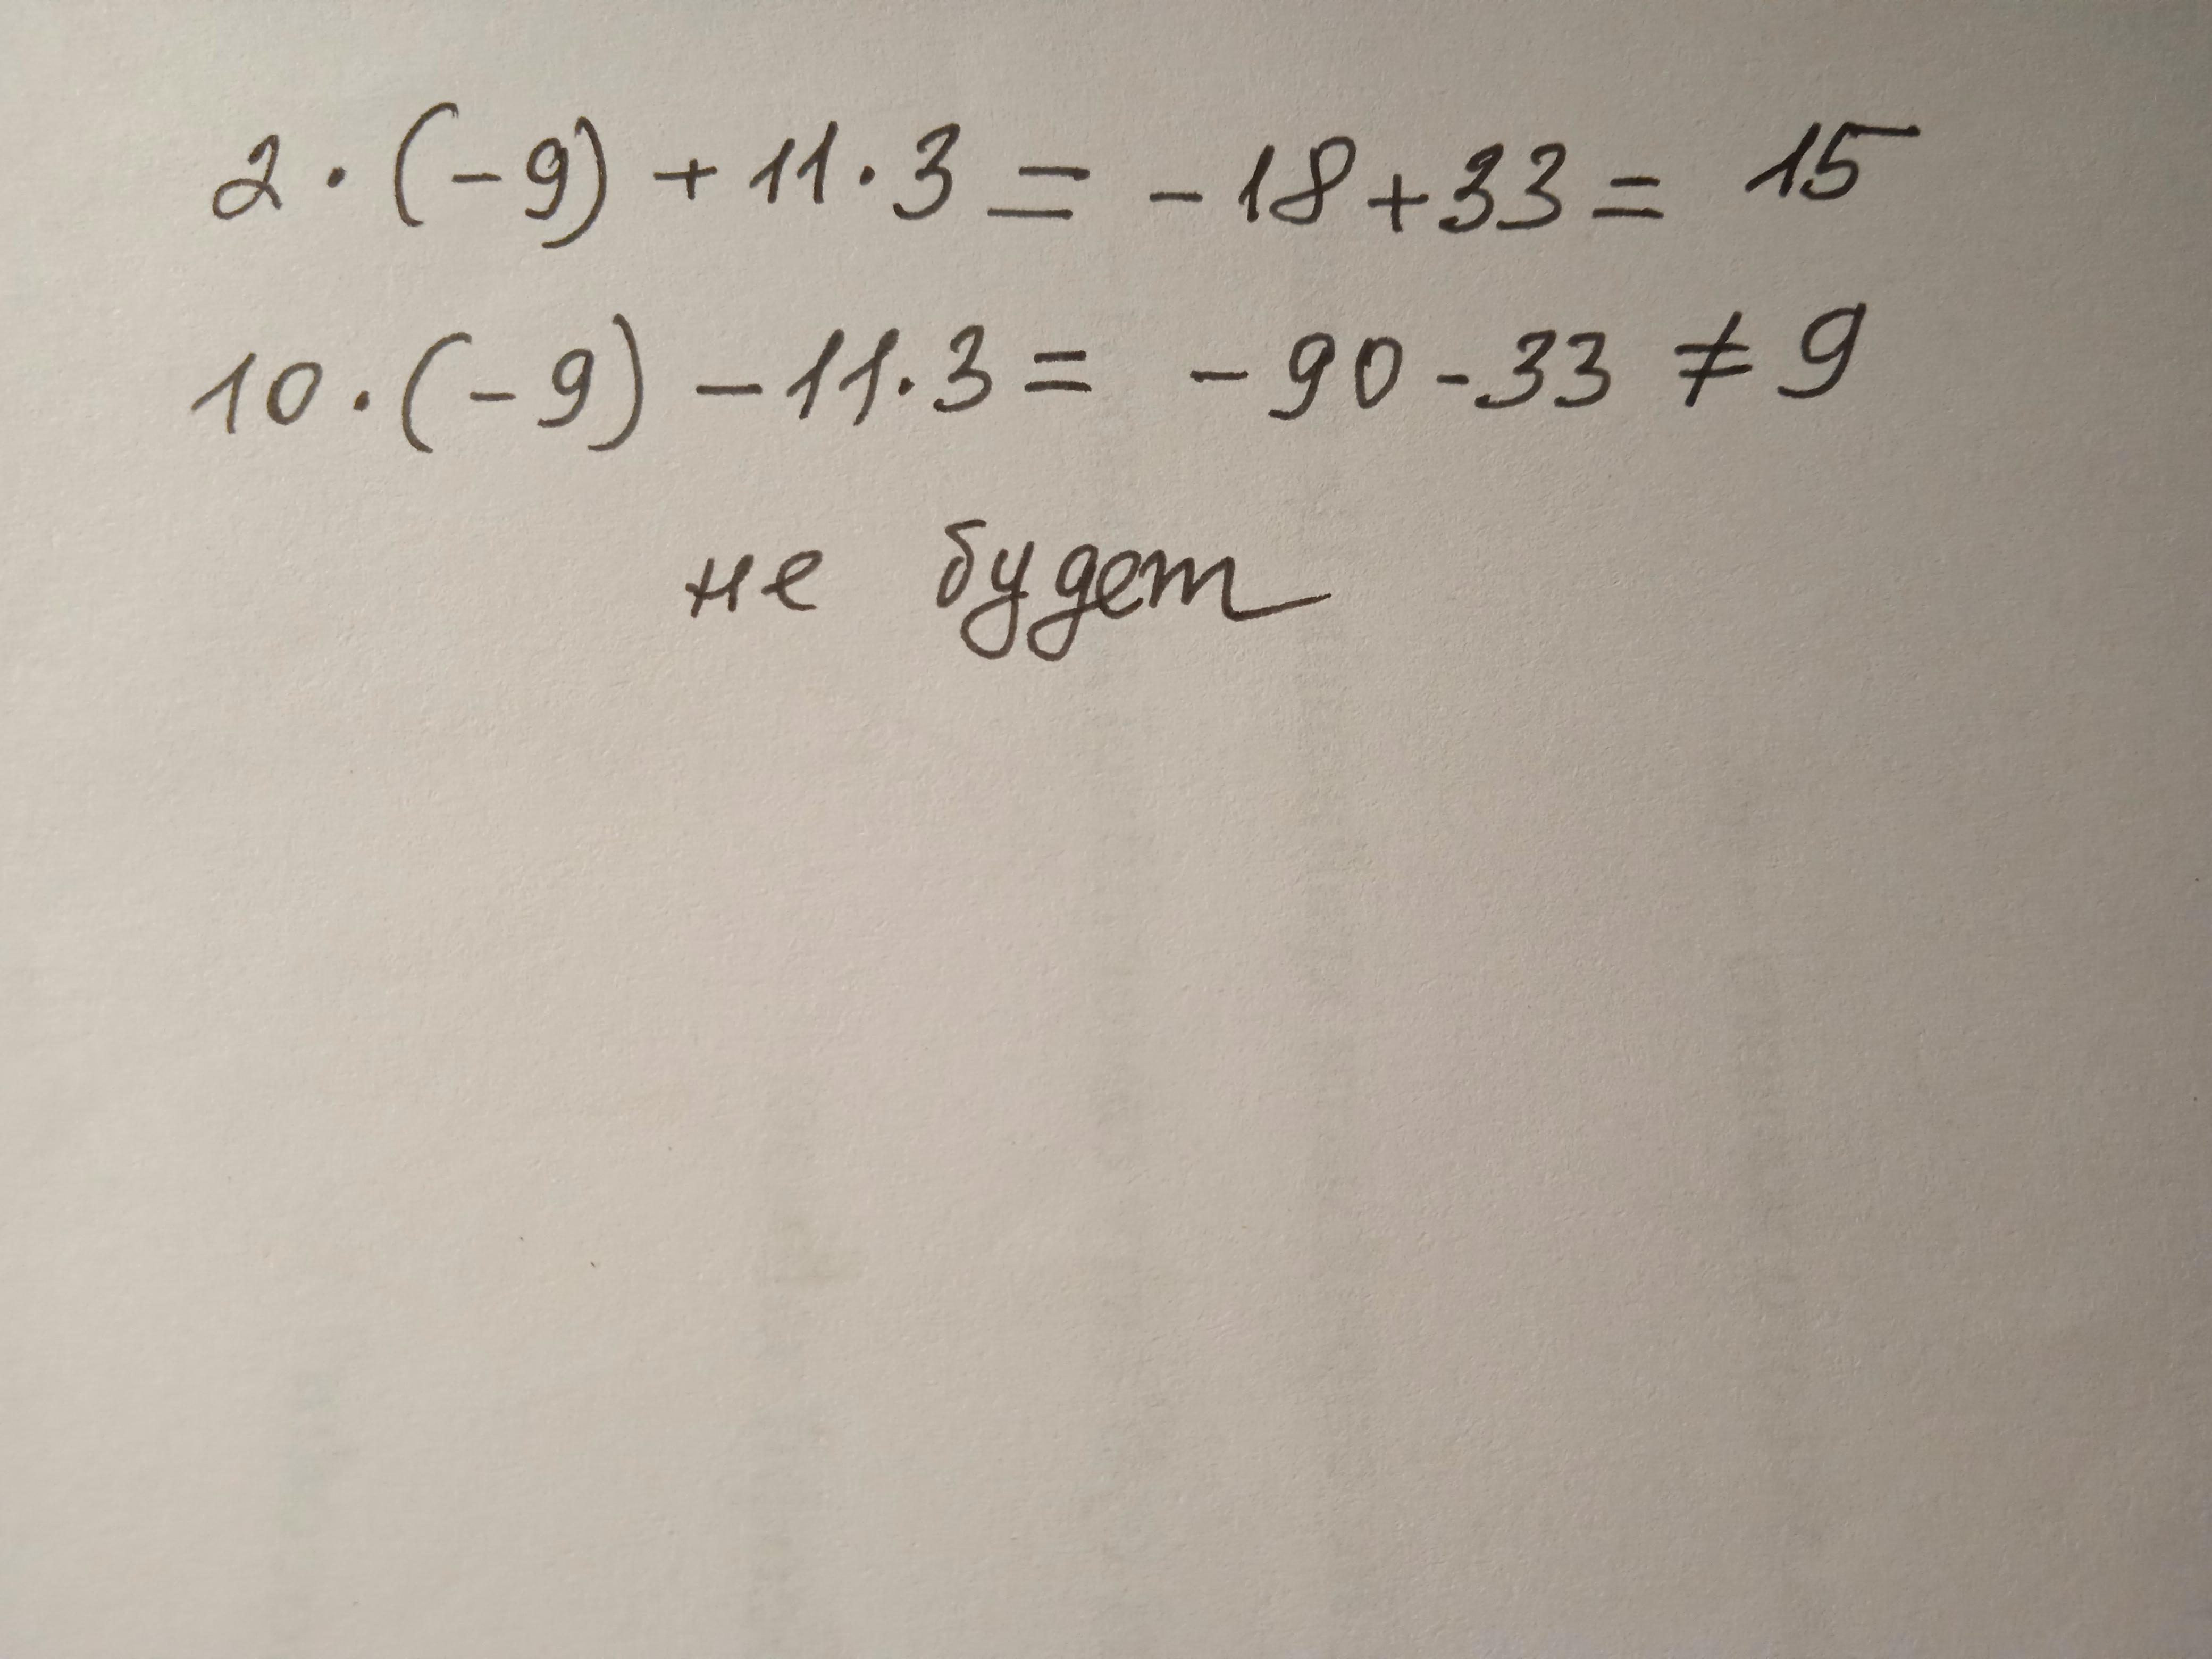 2 · (-9) + 11 · 3 = - 18 + 33 = 15
10 · (-9) - 11 · 3 = - 90 - 33 ≠ 9
не будет